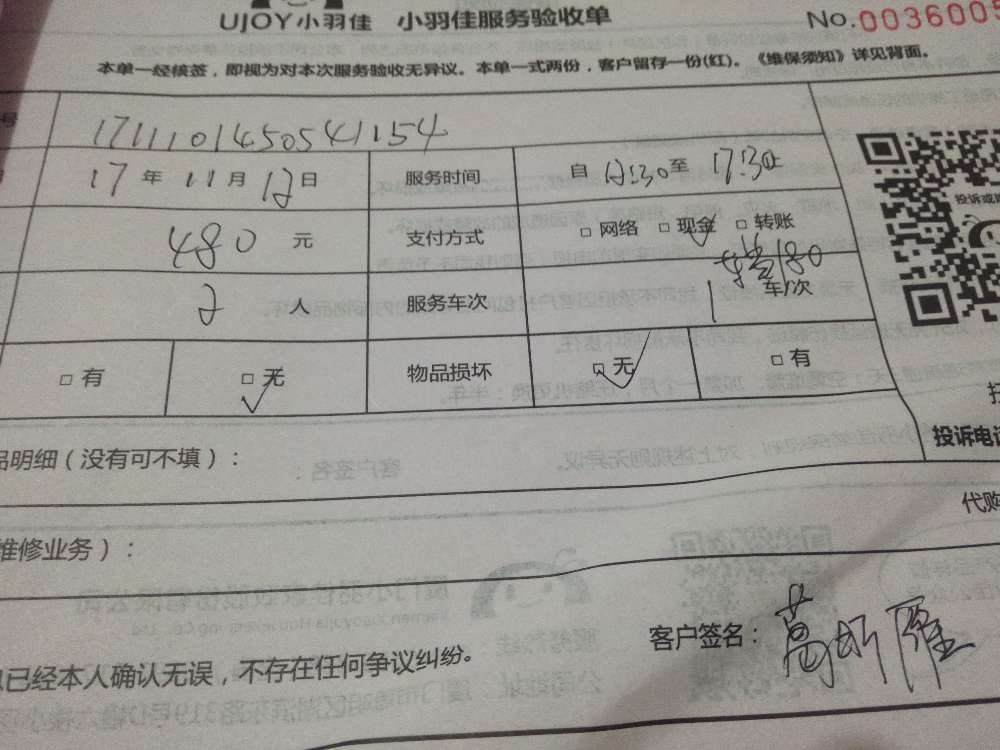 UJOY小羽佳 小羽佳服务验收单
No.0036005
本单一经核签，即视为对本次服务验收无异议。本单一式两份，客户留存一份(红)。《维保须知》详见背面。
号 1711101450541154
17年11月12日 服务时间 自12:30至17:30止
480元 支付方式 □网络 □现金 □转账
180
2人 服务车次 1车/次
□有 □无 物品损坏 □无 □有
投诉电话
品明细（没有可不填）：
代购
维修业务）：
已经本人确认无误，不存在任何争议纠纷。
客户签名：